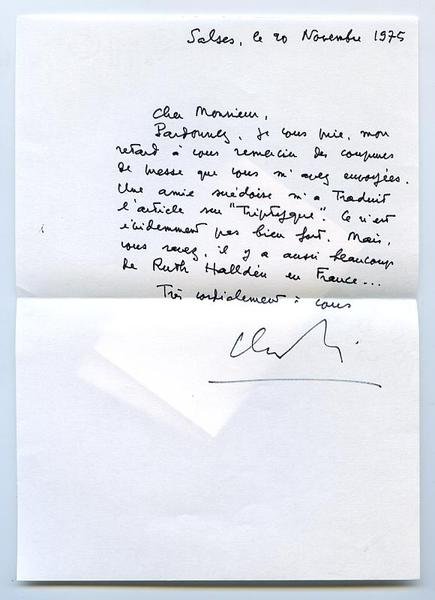 Salses, le 20 Novembre 1975
Cher Monsieur,
Pardonnez, je vous prie, mon
retard à vous remercier des coupures
de presse que vous m'avez envoyées.
Une amie suédoise m'a traduit
l'article sur "Triptyque". Ce n'est
évidemment pas bien fort. Mais,
vous savez, il y a aussi beaucoup
de Ruth Halldén en France...
Très cordialement à vous